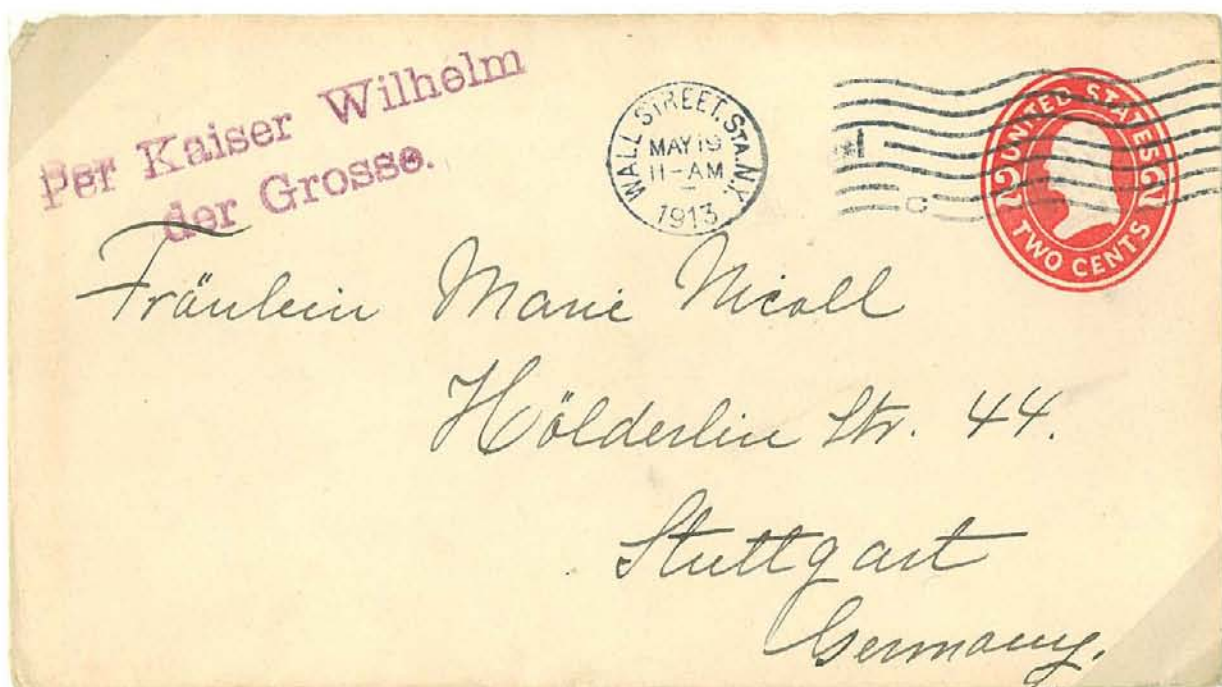 Per Kaiser Wilhelm
der Grosse.
WALL STREET. STA. N.Y.
MAY 19
11-AM
1913
UNITED STATES
2 2
TWO CENTS
Fräulein Marie Nicoll
Hölderlin Str. 44.
Stuttgart
Germany.